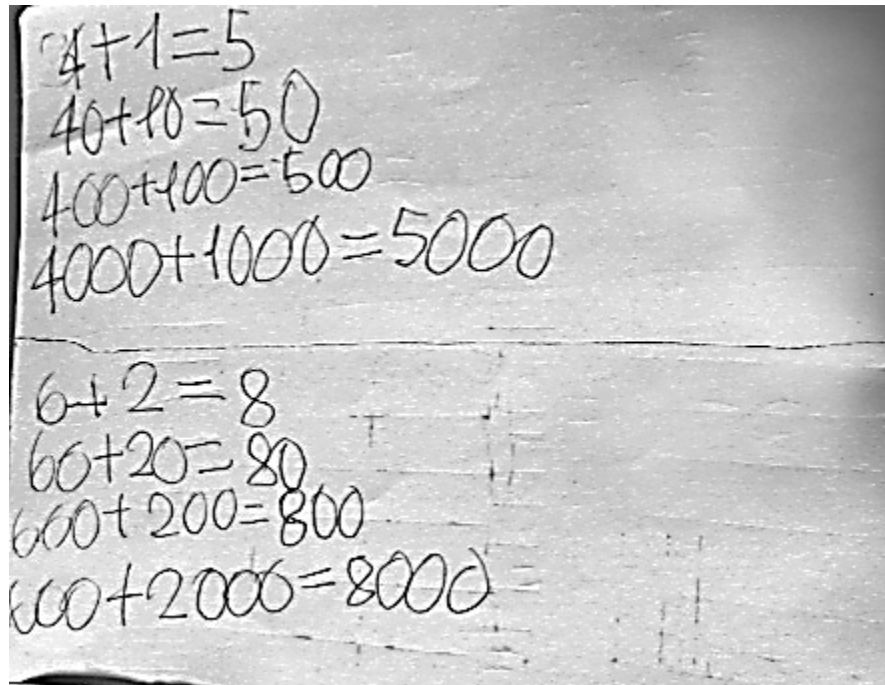 4+1=5
40+10=50
400+100=500
4000+1000=5000
6+2=8
60+20=80
600+200=800
000+2000=8000